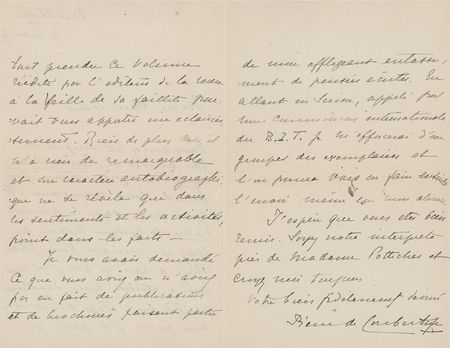 tout prendre ce volume
édité par l'éditeur de la revue
à la veille de sa faillite pou-
vait vous apporter un éclaircis-
sement. Rien de plus car il
n'a rien de remarquable
et son caractère autobiographi-
que ne se révèle que dans
les sentiments et les activités,
point dans les faits —
Je vous avais demandé
ce que vous aviez ou n'aviez
pas en fait de publications
et de brochures faisant partie
de mon affligeant entasse-
ment de pensées écrites. En
allant en Suisse, appelé par
une commission internationale
du B.I.T. je m'efforcerai d'en
grouper des exemplaires et
l'on pourra vous en faire
l'envoi même en mon absence
J'espère que vous êtes bien
remis. Soyez notre interprète
près de Madame Pottecher et
croyez moi toujours
votre bien fidèlement dévoué
Pierre de Coubertin